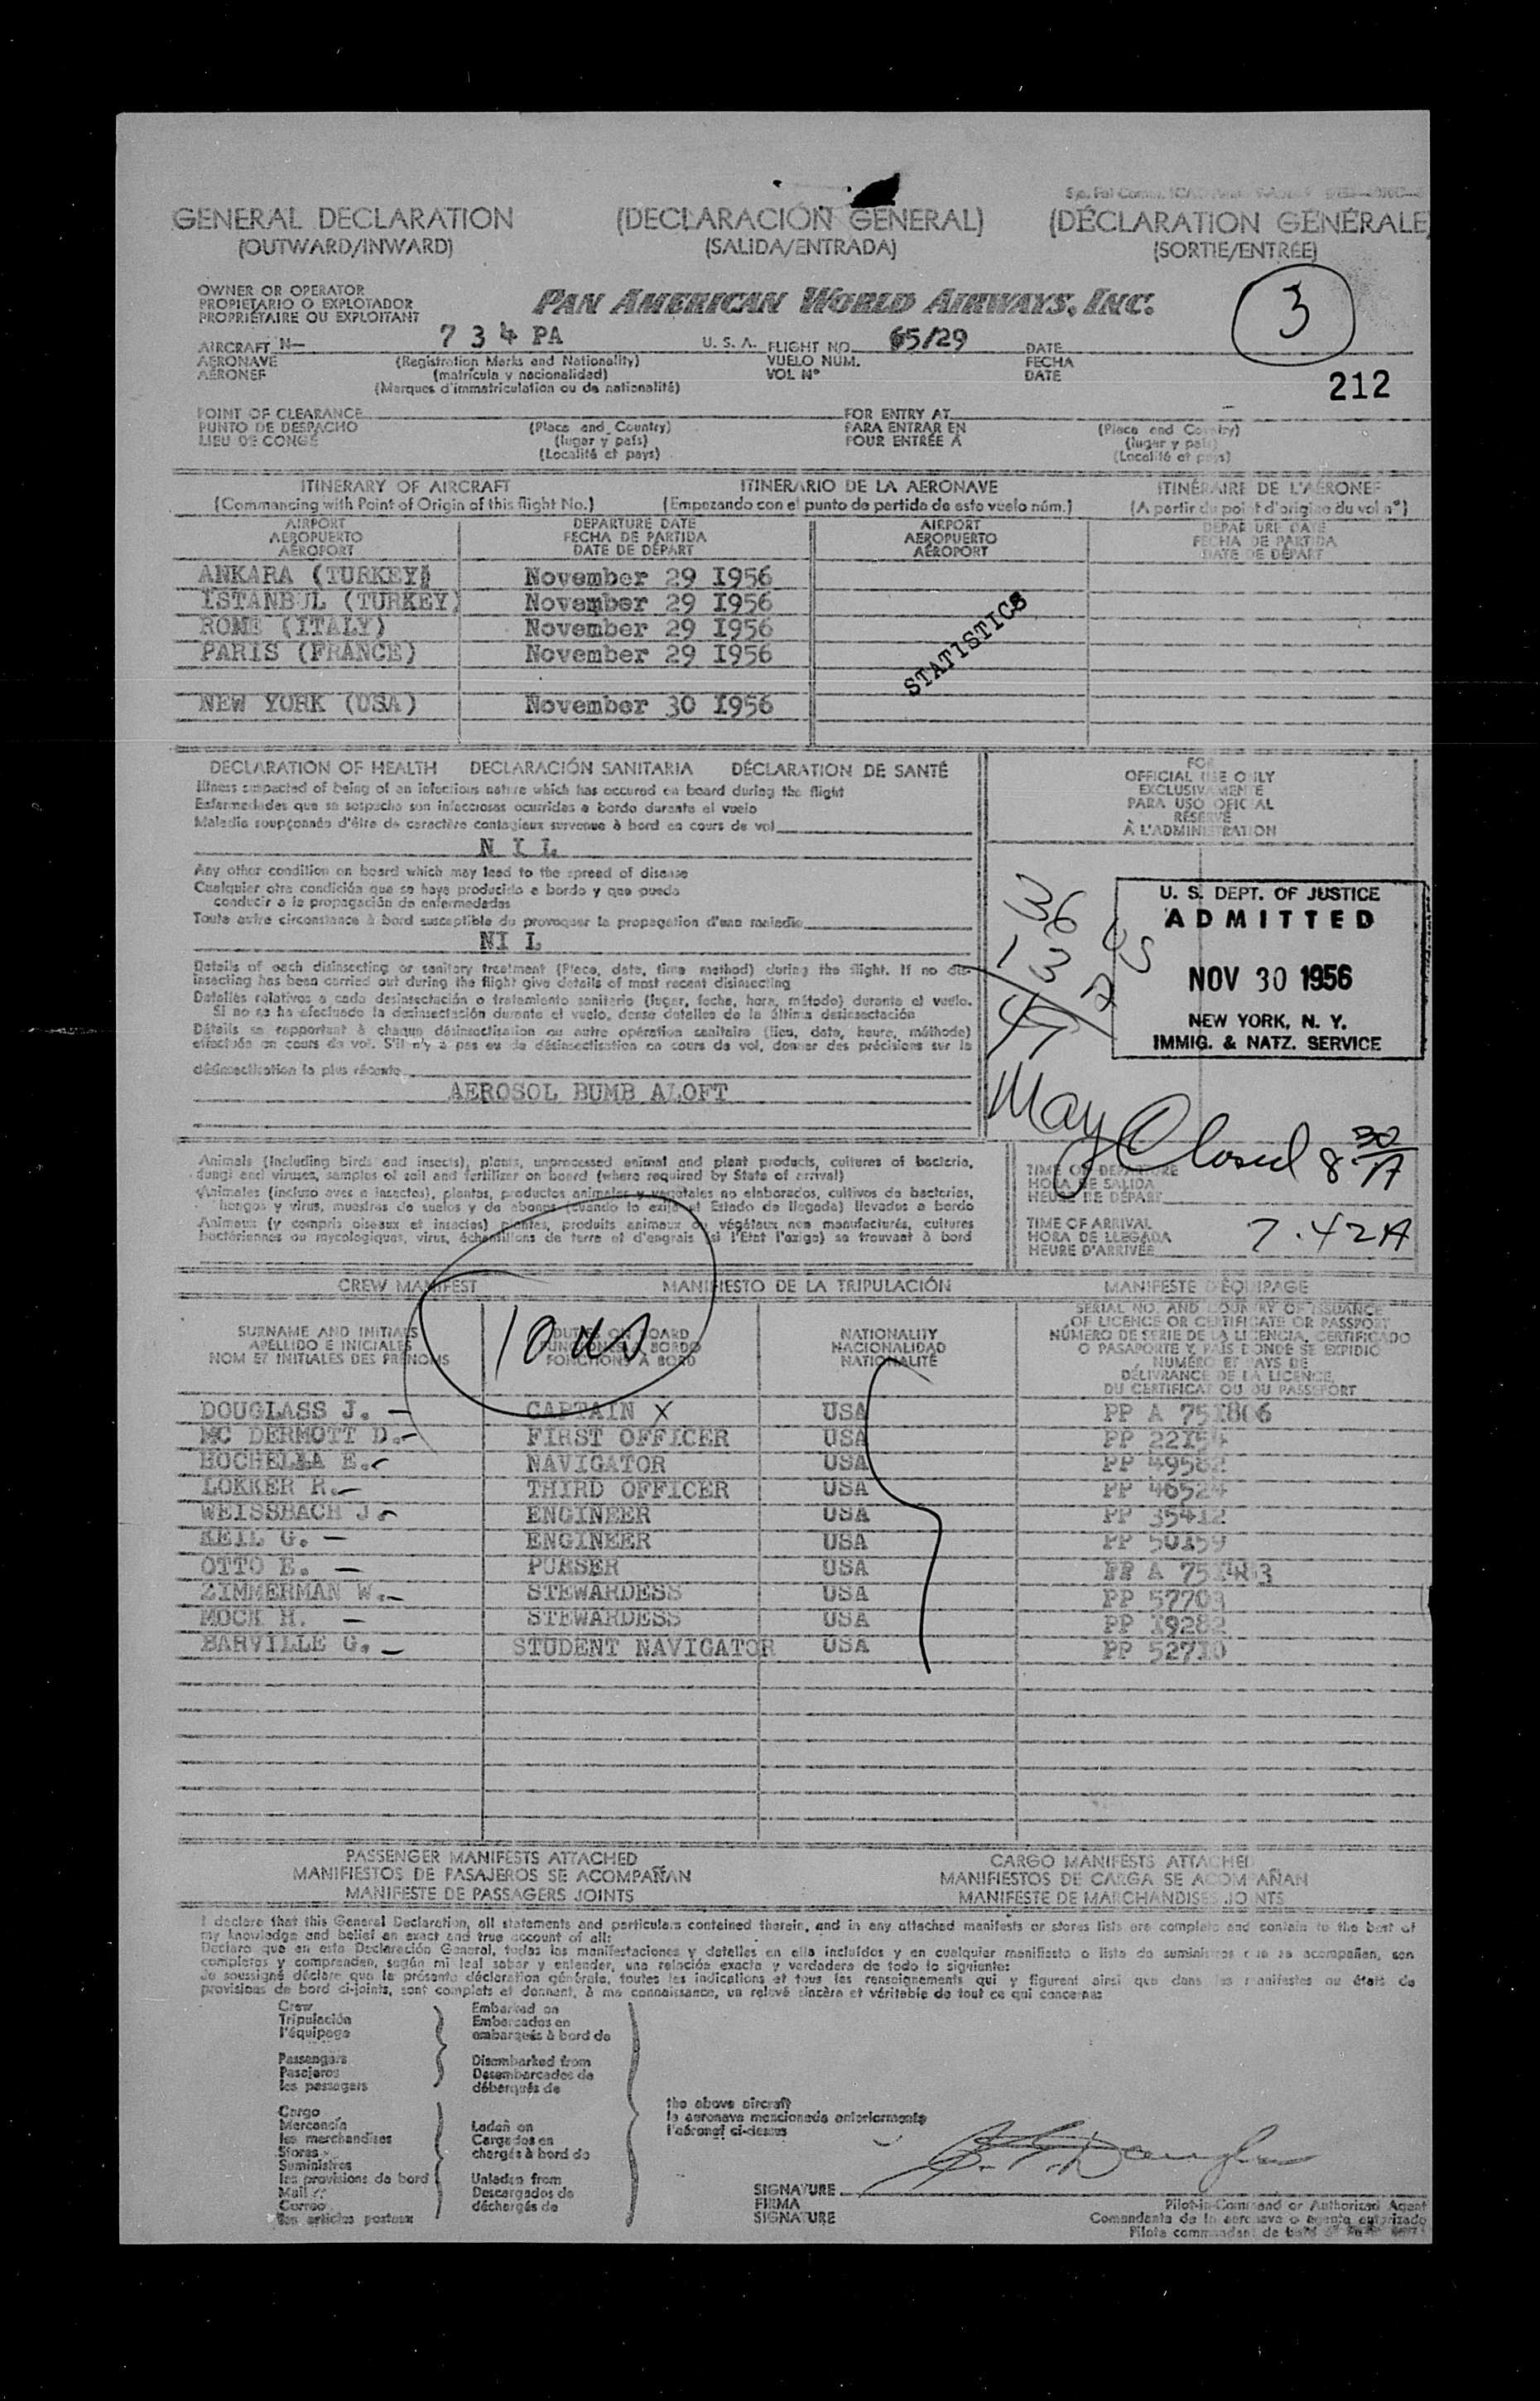 GENERAL DECLARATION (DECLARACIÓN GENERAL) (DÉCLARATION GÉNÉRALE)
(OUTWARD/INWARD) (SALIDA/ENTRADA) (SORTIE/ENTRÉE)
OWNER OR OPERATOR
PROPIETARIO O EXPLOTADOR
PROPRIÉTAIRE OU EXPLOITANT
PAN AMERICAN WORLD AIRWAYS, INC.
3
AIRCRAFT N— 7 3 4 PA U. S. A. FLIGHT NO. 65/29 DATE
AERONAVE (Registration Marks and Nationality) VUELO NUM. FECHA
AÉRONEF (matrícula y nacionalidad) VOL Nº DATE
(Marques d'immatriculation ou de nationalité)
212
POINT OF CLEARANCE FOR ENTRY AT
PUNTO DE DESPACHO (Place and Country) PARA ENTRAR EN (Place and Country)
LIEU DE CONGÉ (lugar y país) POUR ENTRÉE À (lugar y país)
(Localité et pays) (Localité et pays)
ITINERARY OF AIRCRAFT ITINERARIO DE LA AERONAVE ITINÉRAIRE DE L'AÉRONEF
(Commencing with Point of Origin of this flight No.) (Empezando con el punto de partida de este vuelo núm.) (A partir du point d'origine du vol nº)
AIRPORT DEPARTURE DATE AIRPORT DEPARTURE DATE
AEROPUERTO FECHA DE PARTIDA AEROPUERTO FECHA DE PARTIDA
AÉROPORT DATE DE DÉPART AÉROPORT DATE DE DÉPART
ANKARA (TURKEY) November 29 I956
ISTANBUL (TURKEY) November 29 I956
ROME (ITALY) November 29 I956
PARIS (FRANCE) November 29 I956
STATISTICS
NEW YORK (USA) November 30 I956
DECLARATION OF HEALTH DECLARACIÓN SANITARIA DÉCLARATION DE SANTÉ
Illness suspected of being of an infectious nature which has occured on board during the flight
Enfermedades que se sospecha son infecciosas ocurridas a bordo durante el vuelo
Maladie soupçonnée d'être de caractère contagieux survenue à bord en cours de vol
N I L
FOR
OFFICIAL USE ONLY
EXCLUSIVAMENTE
PARA USO OFICIAL
RÉSERVÉ
À L'ADMINISTRATION
Any other condition on board which may lead to the spread of disease
Cualquier otra condición que se haya producido a bordo y que pueda
conducir a la propagación de enfermedades
Toute autre circonstance à bord susceptible de provoquer la propagation d'une maladie
NI L
36
13
49
U. S. DEPT. OF JUSTICE
ADMITTED
NOV 30 1956
NEW YORK, N. Y.
IMMIG. & NATZ. SERVICE
Details of each disinsecting or sanitary treatment (Place, date, time method) during the flight. If no dis-
insecting has been carried out during the flight give details of most recent disinsecting
Detalles relativos a cada desinsectación o tratamiento sanitario (lugar, fecha, hora, método) durante el vuelo.
Si no se ha efectuado la desinsectación durante el vuelo, dense detalles de la última desinsectación
Détails se rapportant à chaque désinsectisation ou autre opération sanitaire (lieu, date, heure, méthode)
effectuée en cours de vol. S'il n'y a pas eu de désinsectisation en cours de vol, donner des précisions sur la
désinsectisation la plus récente
AEROSOL BUMB ALOFT
May Closed 8 30/A
Animals (including birds and insects), plants, unprocessed animal and plant products, cultures of bacteria,
fungi and viruses, samples of soil and fertilizer on board (where required by State of arrival)
Animales (incluso aves e insectos), plantas, productos animales y vegetales no elaborados, cultivos de bacterias,
hongos y virus, muestras de suelos y de abonos (cuando lo exija el Estado de llegada) llevados a bordo
Animaux (y compris oiseaux et insectes) plantes, produits animaux ou végétaux non manufacturés, cultures
bactériennes ou mycologiques, virus, échantillons de terre et d'engrais (si l'État l'exige) se trouvant à bord
TIME OF DEPARTURE
HORA DE SALIDA
HEURE DE DÉPART
TIME OF ARRIVAL
HORA DE LLEGADA
HEURE D'ARRIVÉE
7.42A
CREW MANIFEST MANIFIESTO DE LA TRIPULACIÓN MANIFESTE D'ÉQUIPAGE
SURNAME AND INITIALS
APELLIDO E INICIALES
NOM ET INITIALES DES PRÉNOMS
DUTIES ON BOARD
FUNCIONES A BORDO
FONCTIONS À BORD
10 US
NATIONALITY
NACIONALIDAD
NATIONALITÉ
SERIAL NO. AND COUNTRY OF ISSUANCE
OF LICENCE OR CERTIFICATE OR PASSPORT
NÚMERO DE SERIE DE LA LICENCIA, CERTIFICADO
O PASAPORTE Y PAÍS DONDE SE EXPIDIÓ
NUMÉRO ET PAYS DE
DÉLIVRANCE DE LA LICENCE,
DU CERTIFICAT OU DU PASSEPORT
DOUGLASS J. — CAPTAIN X USA PP A 751806
MC DERMOTT D. — FIRST OFFICER USA PP 22154
HOCHELLA E. NAVIGATOR USA PP 49582
LOKKER R. — THIRD OFFICER USA PP 46524
WEISSBACH J. ENGINEER USA PP 35412
KEIL G. — ENGINEER USA PP 50159
OTTO E. — PURSER USA PP A
ZIMMERMAN W. — STEWARDESS USA PP
MOCK H. — STEWARDESS USA PP 19282
BARVILLE G. — STUDENT NAVIGATOR USA PP 52710
PASSENGER MANIFESTS ATTACHED CARGO MANIFESTS ATTACHED
MANIFIESTOS DE PASAJEROS SE ACOMPAÑAN MANIFIESTOS DE CARGA SE ACOMPAÑAN
MANIFESTE DE PASSAGERS JOINTS MANIFESTE DE MARCHANDISES JOINTS
I declare that this General Declaration, all statements and particulars contained therein, and in any attached manifests or stores lists are complete and contain to the best of
my knowledge and belief an exact and true account of all:
Declaro que en esta Declaración General, todas las manifestaciones y detalles en ella incluídos y en cualquier manifiesto o lista de suministros que se acompañen, son
completos y comprenden, según mi leal saber y entender, una relación exacta y verdadera de todo lo siguiente:
Je soussigné déclare que la présente déclaration générale, toutes les indications et tous les renseignements qui y figurent ainsi que dans les manifestes ou états de
provisions de bord ci-joints, sont complets et donnent, à ma connaissance, un relevé sincère et véritable de tout ce qui concerne:
Crew Embarked on
Tripulación Embarcados en
l'équipage embarqués à bord de
Passengers Disembarked from
Pasajeros Desembarcados de
les passagers débarqués de
the above aircraft
la aeronave mencionada anteriormente
l'aéronef ci-dessus
Cargo
Mercancía Laden on
les marchandises Cargados en
Stores chargés à bord de
Suministros
les provisions de bord Unladen from
Mail Descargados de
Correo déchargés de
les articles postaux
SIGNATURE
FIRMA
SIGNATURE
Pilot-in-Command or Authorized Agent
Comandante de la aeronave o agente autorizado
Pilote commandant de bord